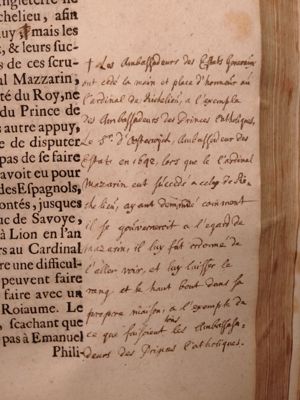 ngleterre ne
ichelieu, afin
uy; † mais les
x, & leurs suc-
s de ces scru-
al Mazzarin,
té du Roy, ne
du Prince de
s autre appuy,
e de disputer
pas de se faire
avoit eu pour
des Espagnols,
ontés, jusques
que de Savoye,
à Lion en l'an
rs au Cardinal
re une difficul-
peuvent faire
faire avec un
Roiaume. Le
, scachant que
pas à Emanuel
Phili-
† Les Ambassadeurs des Estats Generaux
ont cédé la main et place d'honneur au
Cardinal de Richelieu, a l'exemple
des Ambassadeurs des Princes Catholiques,
Le Sr. d'Osterwijck, Ambassadeur des
Estats en 1642, lors que le Cardinal
Mazarin eut succédé a celuy de Ri-
chelieu, ayant demandé comment
il se gouverneroit a l'egard de
mazarin, il luy fut ordonné de
l'aller voir, et luy laisser le
rang et le haut bout dans sa
propre maison, a l'exemple de
ce que faisoient tous les Ambassa-
deurs des Princes Catholiques.